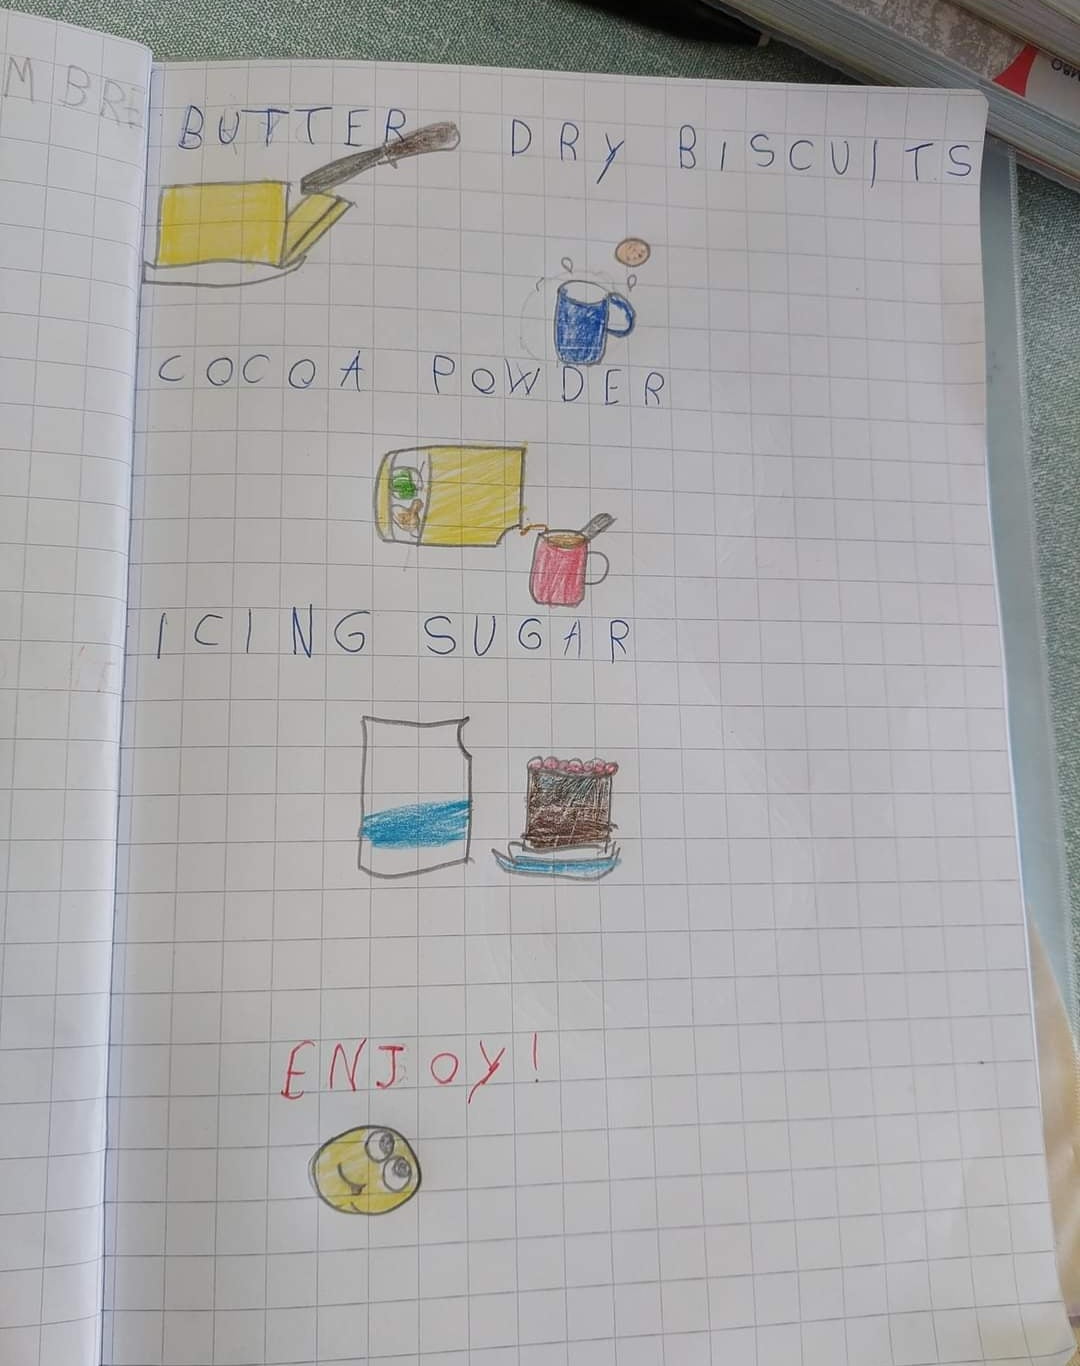 BUTTER DRY BISCUITS
COCOA POWDER
ICING SUGAR
ENJOY!